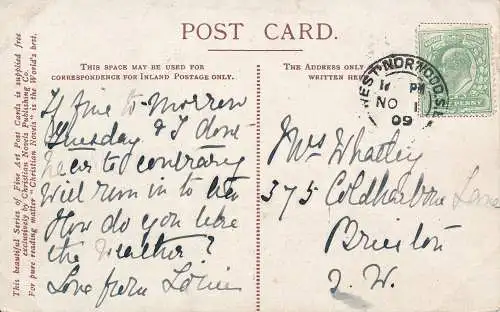 POST CARD.
THIS SPACE MAY BE USED FOR
CORRESPONDENCE FOR INLAND POSTAGE ONLY.
THE ADDRESS ONLY
WRITTEN HERE
This beautiful Series of Fine Art Post Cards is supplied free
exclusively by Christian Novels Publishing Co.
For pure reading matter "Christian Novels" is the World's best.
If fine to-morrow
Tuesday & I don't
hear to contrary
Will run in to tea
How do you like
the weather?
Love from
WEST NORWOOD S.E
PM
NO 1
09
PENNY
Mrs Whatley
375 Coldharbour Lane
Brixton
S. W.